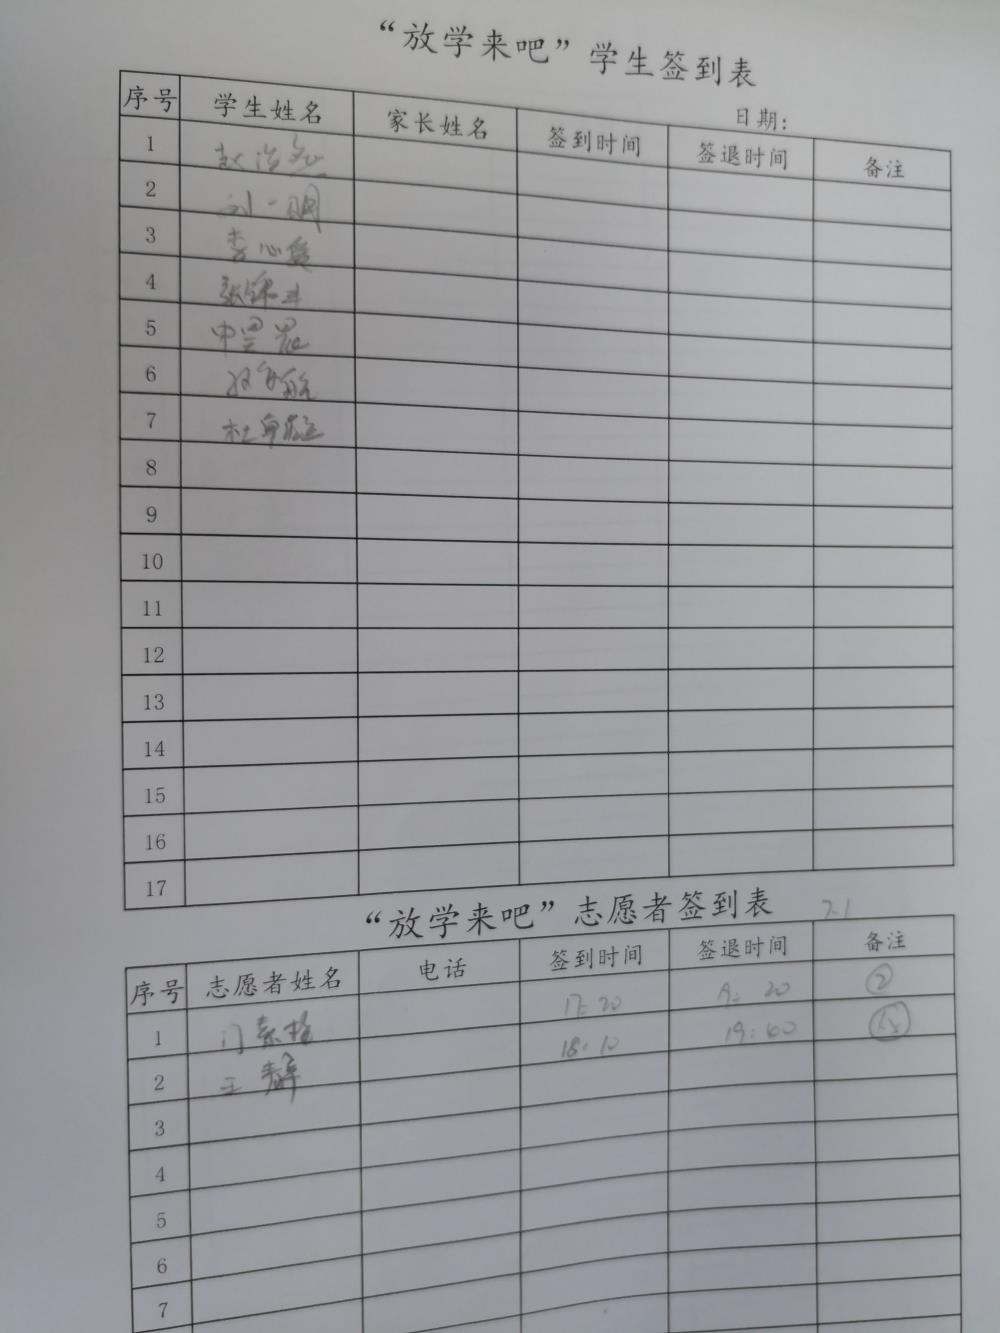 “放学来吧”学生签到表
日期：
序号 学生姓名 家长姓名 签到时间 签退时间 备注
1 赵
2 刘一明
3 李心
4 张
5 申昊
6
7 杜
8
9
10
11
12
13
14
15
16
17
“放学来吧”志愿者签到表 7.1
序号 志愿者姓名 电话 签到时间 签退时间 备注
1 门素梅 17:20 19:20 2
2 王静 18:10 19:60 1.5
3
4
5
6
7